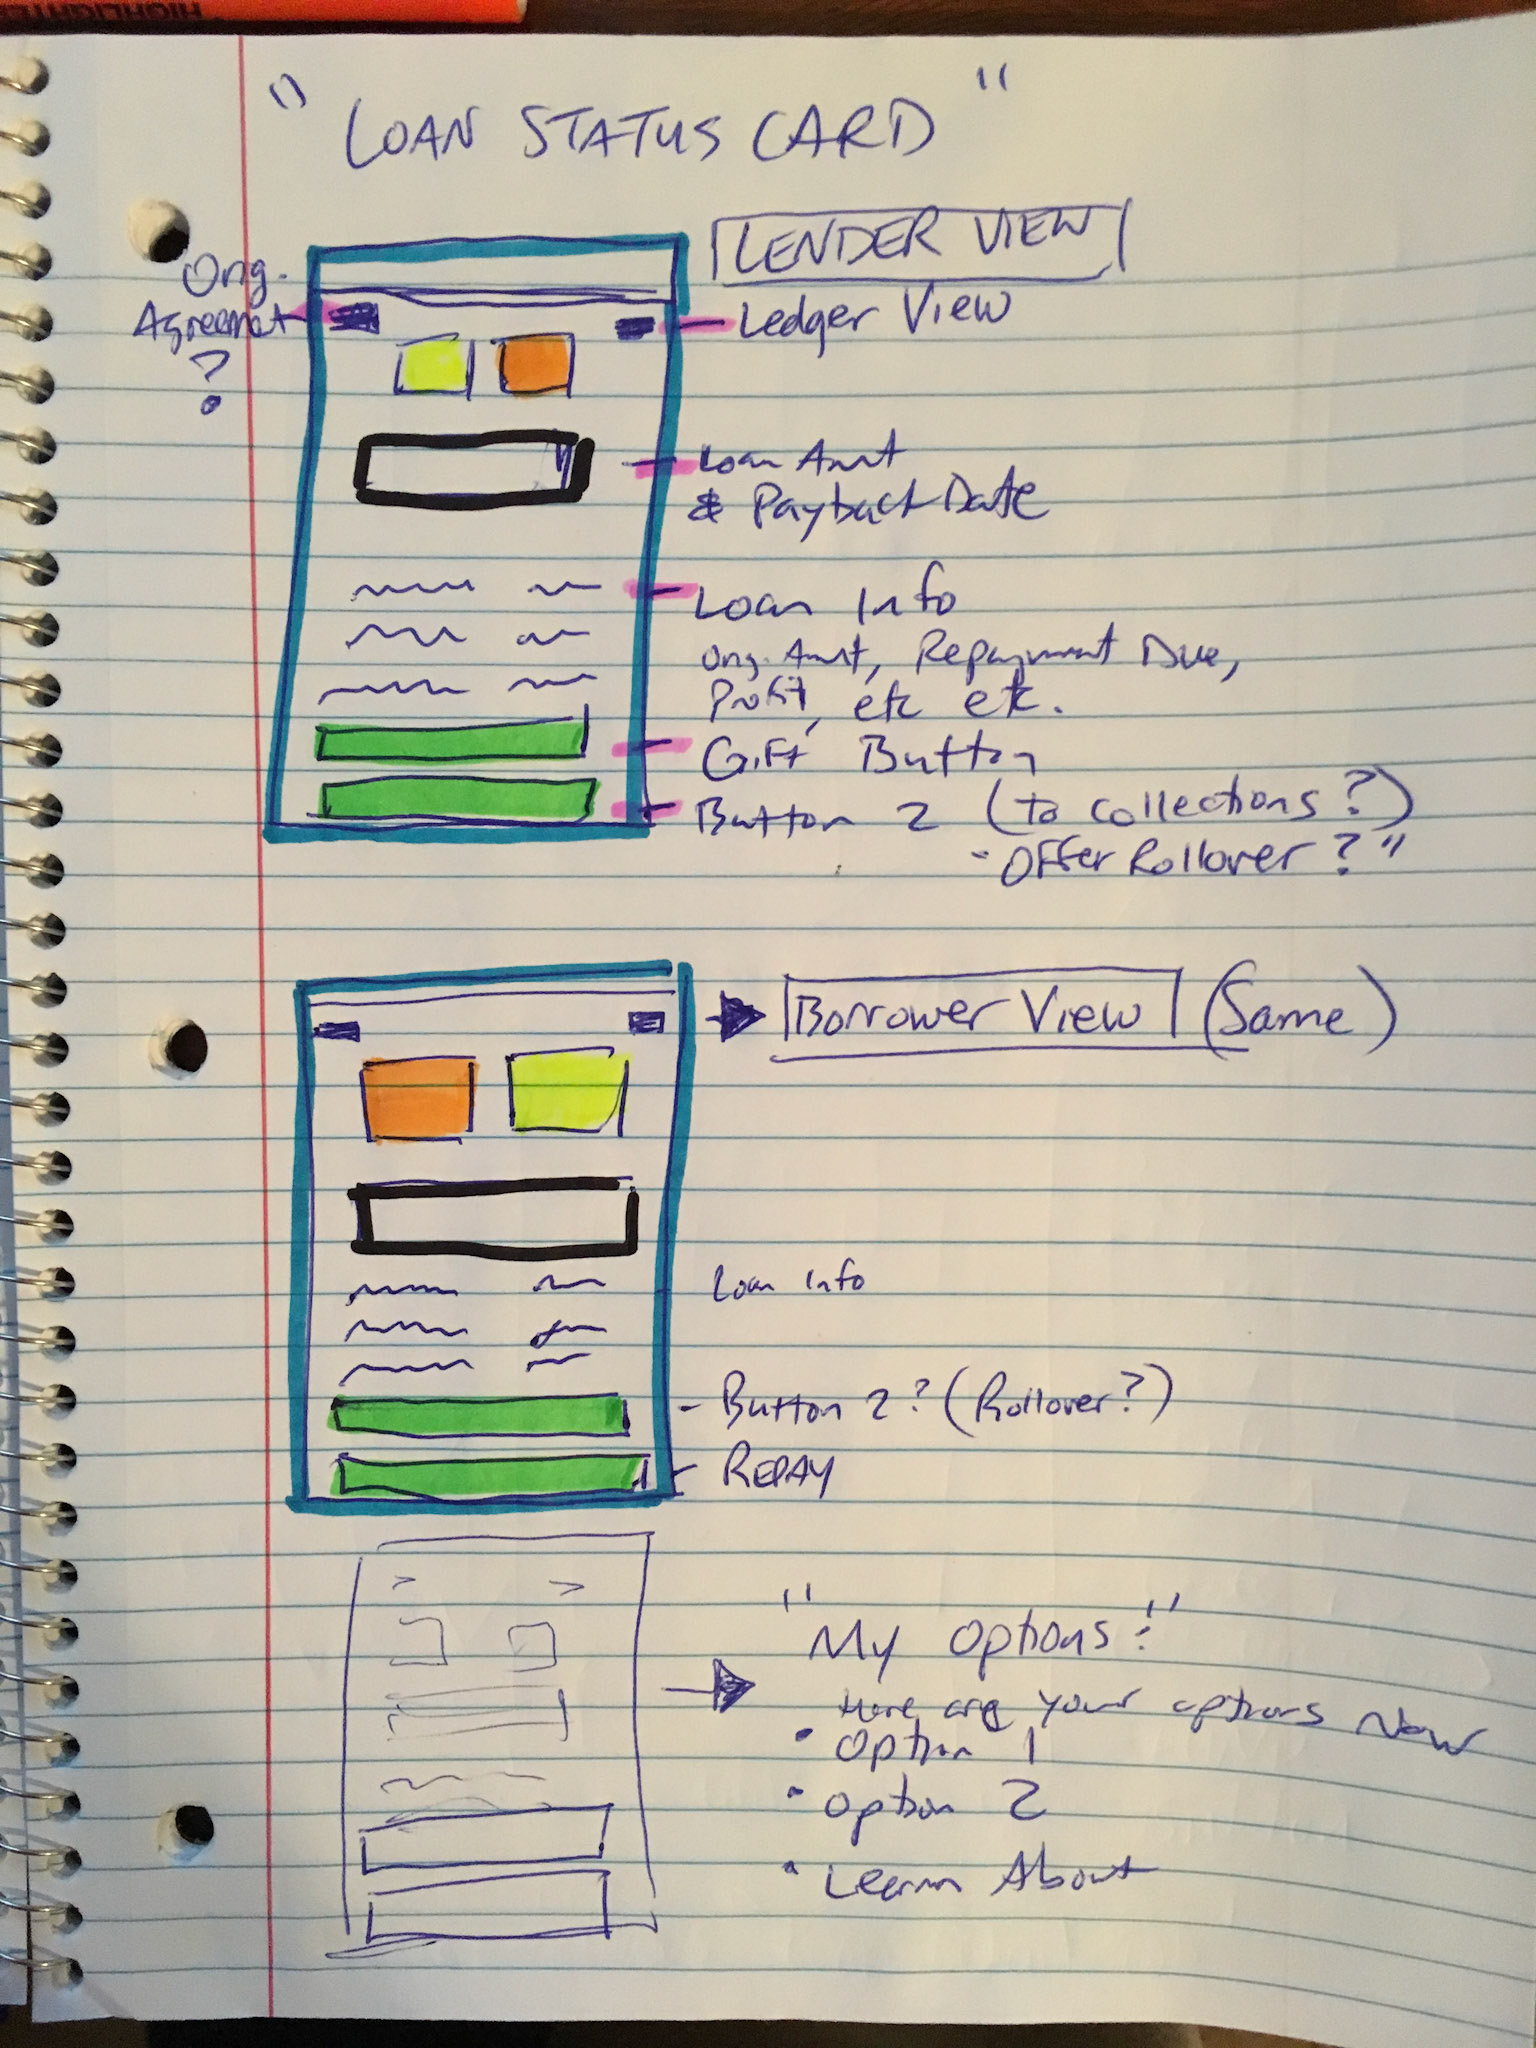 HIGHLIGHTER
" LOAN STATUS CARD "
LENDER VIEW
Orig.
Agreemnt
?
Ledger View
Loan Amt
& Payback Date
Loan Info
Orig. Amt, Repayment Due,
Profit, etc etc.
Gift Button
Button 2 (to collections?)
- Offer Rollover?"
Borrower View (Same)
Loan Info
- Button 2? (Rollover?)
- REPAY
"My options:"
Here are your options Now
• Option 1
• Option 2
• Learn About